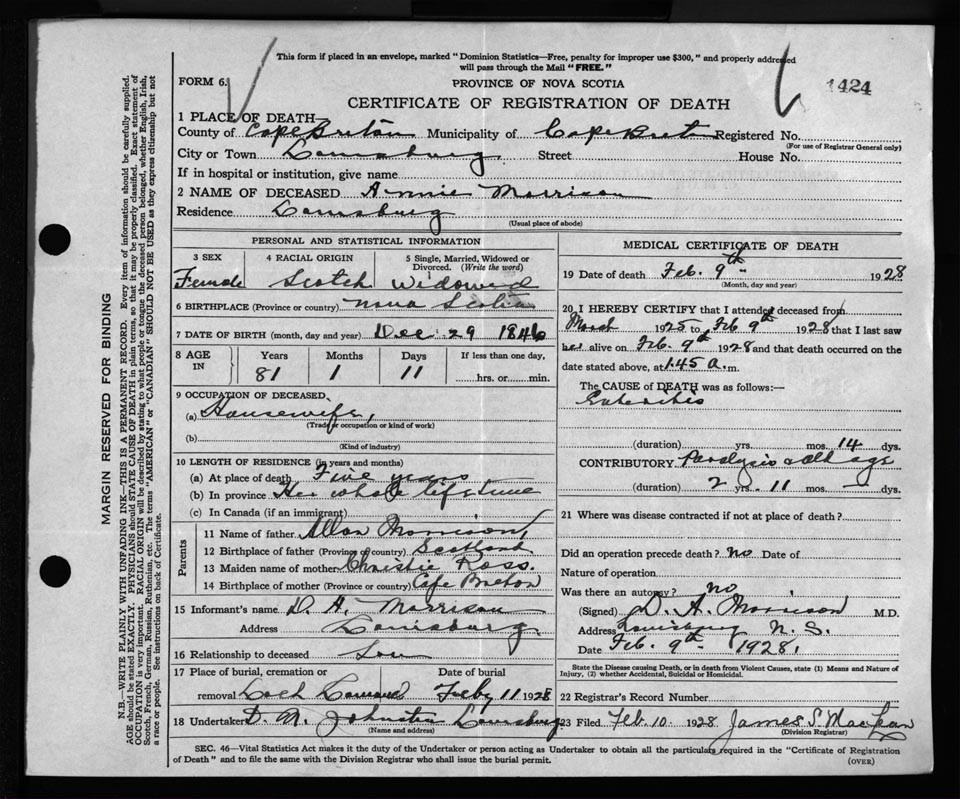 This form if placed in an envelope, marked "Dominion Statistics—Free, penalty for improper use $300," and properly addressed
will pass through the Mail "FREE."
FORM 6.
PROVINCE OF NOVA SCOTIA
1424
CERTIFICATE OF REGISTRATION OF DEATH
1 PLACE OF DEATH—
County of Cape Breton Municipality of Cape Breton Registered No.
(For use of Registrar General only)
City or Town Louisburg Street House No.
If in hospital or institution, give name
2 NAME OF DECEASED Annie Morrison
Residence Louisburg
(Usual place of abode)
PERSONAL AND STATISTICAL INFORMATION
3 SEX 4 RACIAL ORIGIN 5 Single, Married, Widowed or Divorced. (Write the word)
Female Scotch Widowed
6 BIRTHPLACE (Province or country) Nova Scotia
7 DATE OF BIRTH (month, day and year) Dec. 29 1846
8 AGE IN Years Months Days If less than one day,
81 1 11 hrs. or min.
9 OCCUPATION OF DECEASED
(a) Housewife,
(Trade, occupation or kind of work)
(b)
(Kind of industry)
10 LENGTH OF RESIDENCE (in years and months)
(a) At place of death Five years
(b) In province Her whole lifetime
(c) In Canada (if an immigrant)
Parents
11 Name of father Allan Morrison,
12 Birthplace of father (Province or country) Scotland
13 Maiden name of mother Christie Ross.
14 Birthplace of mother (Province or country) Cape Breton
15 Informant's name D. A. Morrison
Address Louisburg.
16 Relationship to deceased Son
17 Place of burial, cremation or removal Loch Lomond Date of burial Feby 11 1928
18 Undertaker D. A. Johnston Louisburg
(Name and address)
MEDICAL CERTIFICATE OF DEATH
19 Date of death Feb. 9th - 1928
(Month, day and year)
20 I HEREBY CERTIFY that I attended deceased from
March 1925 to Feb 9th 1928 that I last saw
her alive on Feb. 9th 1928 and that death occurred on the
date stated above, at 1.45 a. m.
The CAUSE of DEATH was as follows:—
Enteritis
(duration) yrs. mos. 14 dys.
CONTRIBUTORY Paralysis & old age
(duration) 2 yrs. 11 mos. — dys.
21 Where was disease contracted if not at place of death?
Did an operation precede death? no Date of
Nature of operation
Was there an autopsy? no
(Signed) D. A. Morrison M.D.
Address Louisburg N. S.
Date Feb. 9th 1928.
State the Disease causing Death, or in death from Violent Causes, state (1) Means and Nature of
Injury, (2) whether Accidental, Suicidal or Homicidal.
22 Registrar's Record Number
23 Filed Feb. 10 1928 James S. MacLean
(Division Registrar)
SEC. 46—Vital Statistics Act makes it the duty of the Undertaker or person acting as Undertaker to obtain all the particulars required in the "Certificate of Registration
of Death" and to file the same with the Division Registrar who shall issue the burial permit.
(OVER)
MARGIN RESERVED FOR BINDING
N.B.—WRITE PLAINLY WITH UNFADING INK—THIS IS A PERMANENT RECORD. Every item of information should be carefully supplied.
AGE should be stated EXACTLY. PHYSICIANS should STATE CAUSE OF DEATH in plain terms, so that it may be properly classified. Exact statement of
OCCUPATION is very important. RACIAL ORIGIN will be described by stating to what people or tongue the deceased person belonged, whether English, Irish,
Scotch, French, German, Russian, Ruthenian, etc. The terms "AMERICAN" or "CANADIAN" SHOULD NOT BE USED as they express citizenship but not
a race or people. See instructions on back of Certificate.